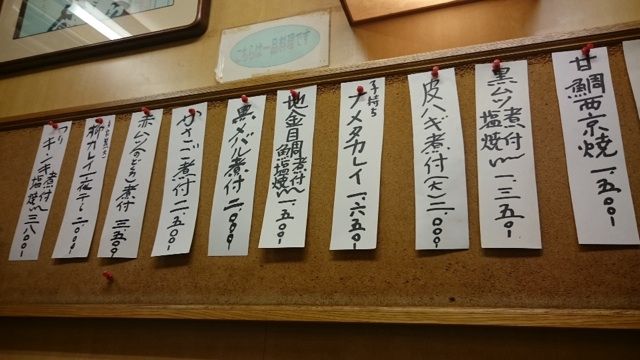 こちらは一品料理です
甘鯛西京焼 一、五〇〇
黒ムツ煮付 塩焼 一、三五〇
皮ハギ煮付(大) 二、〇〇〇
子持ち ナメタカレイ 一、六五〇
地金目鯛煮付 塩焼 一、五〇〇
黒メバル煮付 二、〇〇〇
かさご煮付 二、五〇〇
赤ムツ(のどぐろ)煮付 三、五〇〇
柳カレイ一夜干し 二、〇〇〇
つり キンキ煮付 塩焼 三、八〇〇